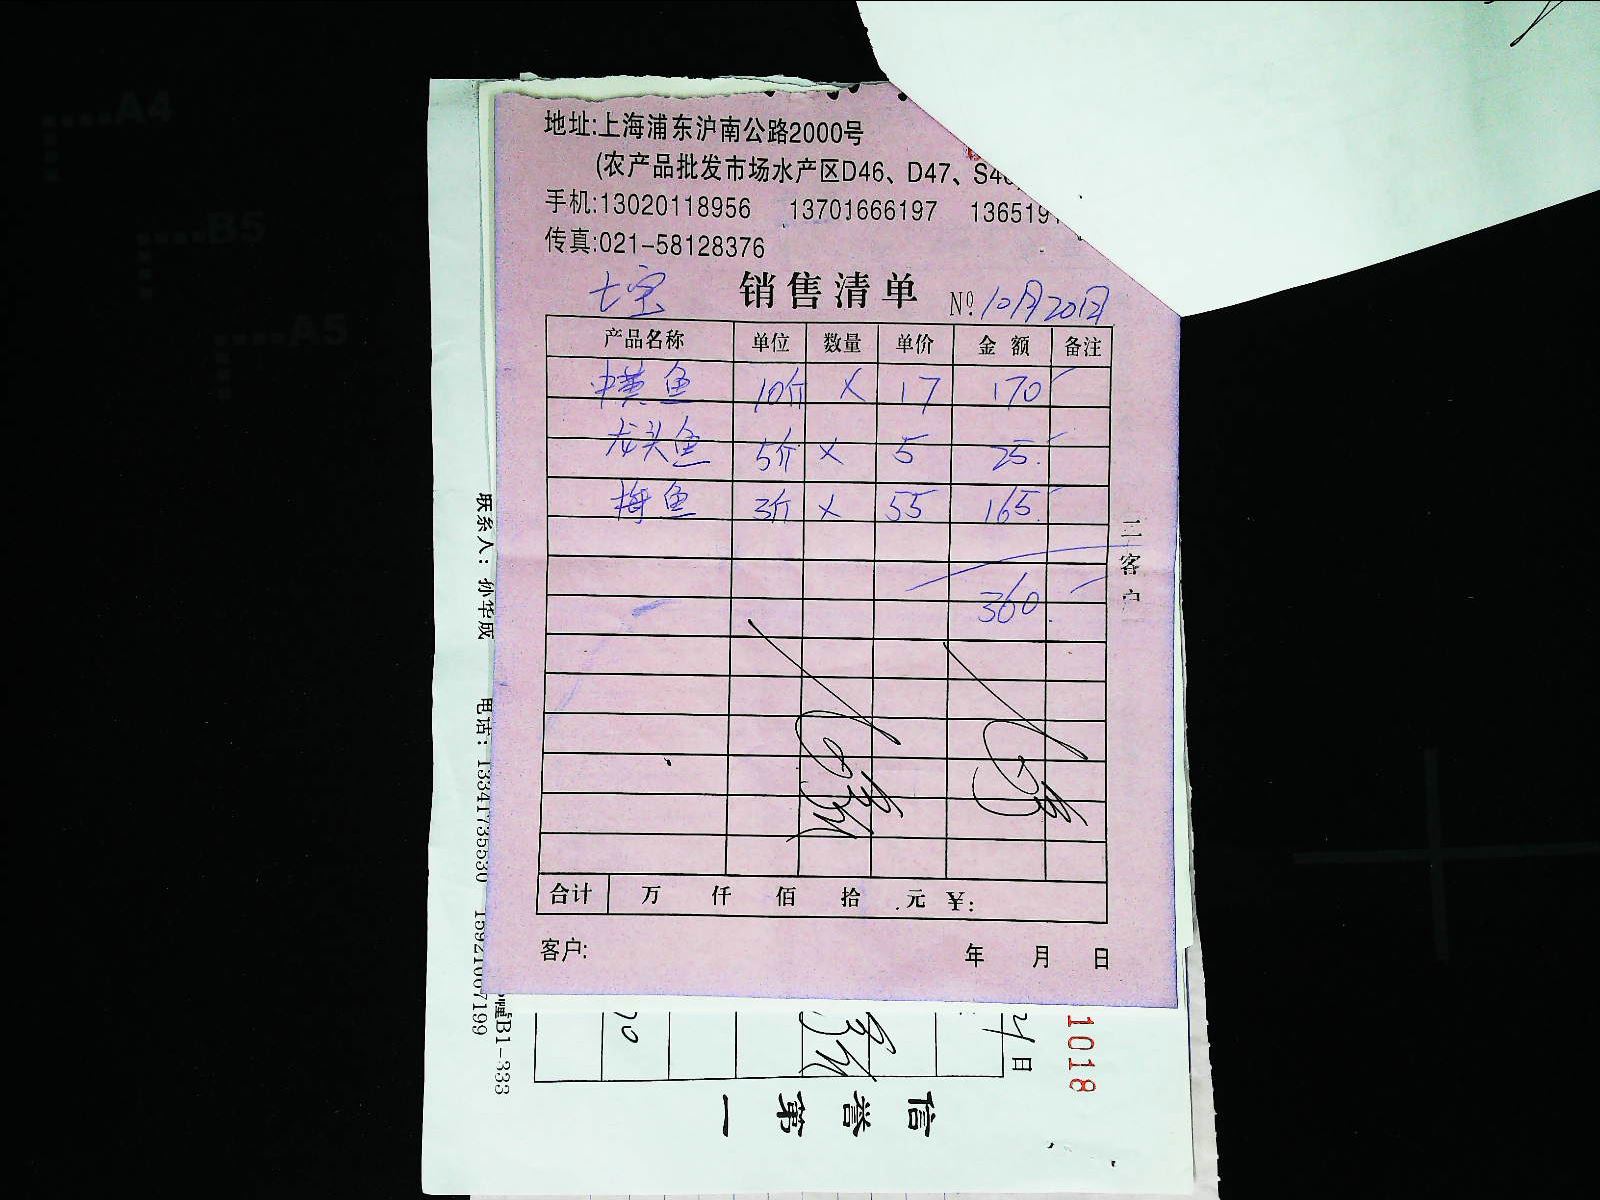 地址:上海浦东沪南公路2000号
(农产品批发市场水产区D46、D47、S46
手机:13020118956 13701666197 136519
传真:021-58128376
七宝 销售清单 №.10月20日
产品名称 单位 数量 单价 金额 备注
中黄鱼 10斤 × 17 170
龙头鱼 5斤 × 5 25.
梅鱼 3斤 × 55 165.
360.
二客户
合计 万 仟 佰 拾 元 ¥:
客户: 年 月 日
联系人: 孙华成 电话: 13341735530 15921067199
幢B1-333
日
1018
信誉第一
A4
B5
A5